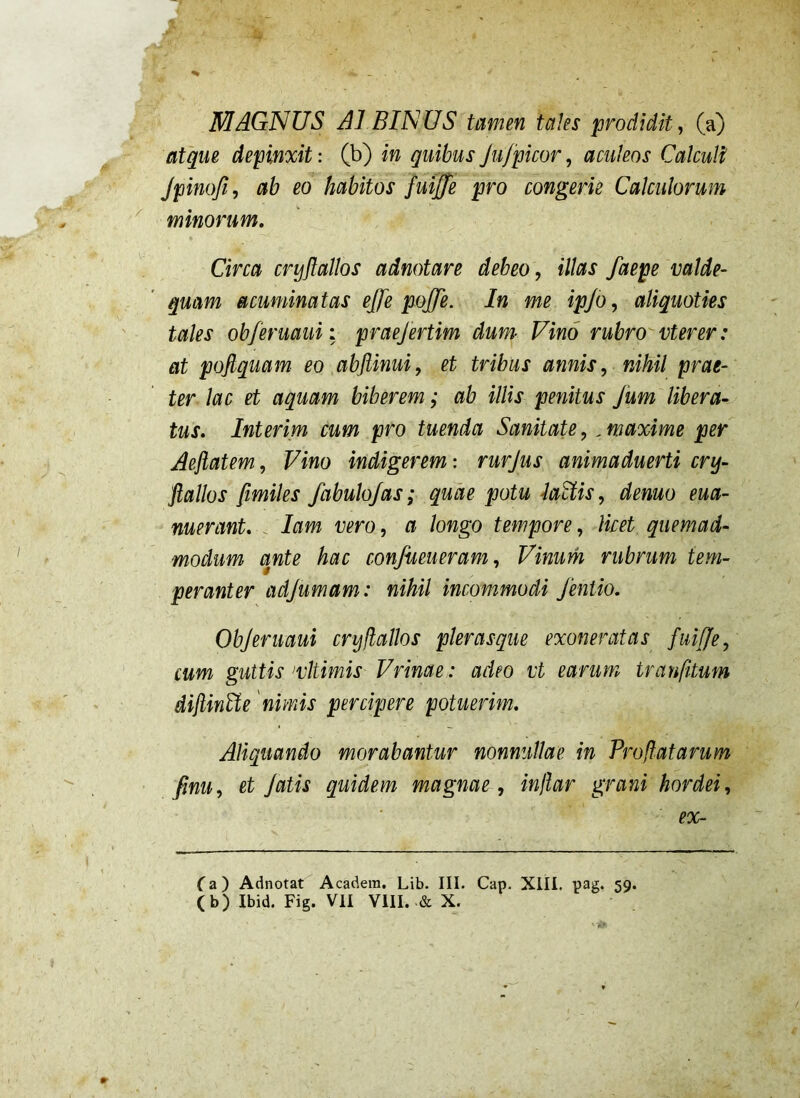 MAGNUS ALBINUS tamen tales prodidit, (a)
atque depinxit: (b) in quibus ſuſpicor, aculeos Calculi
ſpinoſi, ab eo habitos fuiſſe pro congerie Calculorum
minorum.
Circa cryſtallos adnotare debeo, illas ſaepe valde-
quam acuminatas eſſe poſſe. In me ipſo, aliquoties
tales obſeruaui; praeſertim dum Vino rubro vterer:
at poſtquam eo abſtinui, et tribus annis, nihil prae-
ter lac et aquam biberem; ab illis penitus ſum libera-
tus. Interim cum pro tuenda Sanitate, maxime per
Aeſtatem, Vino indigerem: rurſus animaduerti cry-
ſtallos ſimiles ſabuloſas; quae potu lactis, denuo eua-
nuerant. Iam vero, a longo tempore, licet quemad-
modum ante hac conſueueram, Vinum rubrum tem-
peranter adſumam: nihil incommodi ſentio.
Obſeruaui cryſtallos plerasque exoneratas fuiſſe,
cum guttis vltimis Vrinae: adeo vt earum tranſitum
diſtincte nimis percipere potuerim.
Aliquando morabantur nonnullae in Proſtatarum
ſinu, et ſatis quidem magnae, inſtar grani hordei,
ex-
(a) Adnotat Academ. Lib. III. Cap. XIII. pag. 59.
(b) Ibid. Fig. VII VIII. & X.